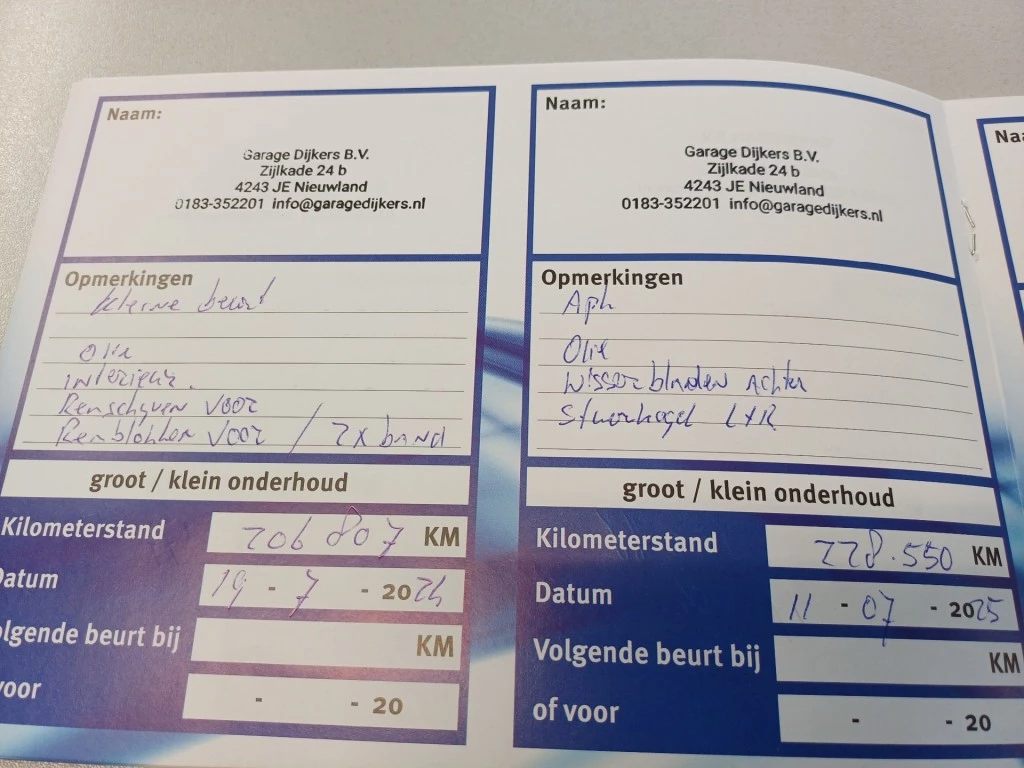 Naam:
Garage Dijkers B.V.
Zijlkade 24 b
4243 JE Nieuwland
0183-352201 info@garagedijkers.nl
Opmerkingen
kleine beurt
Olie
interieur.
Remschijven voor
Remblokken voor / 2x band
groot / klein onderhoud
Kilometerstand 206 807 KM
Datum 19 - 7 - 2024
olgende beurt bij KM
voor - - 20
Naam:
Garage Dijkers B.V.
Zijlkade 24 b
4243 JE Nieuwland
0183-352201 info@garagedijkers.nl
Opmerkingen
Apk
Olie
Wisserbladen Achter
Stuurkogel L+R
groot / klein onderhoud
Kilometerstand 228.550 KM
Datum 11 - 07 - 2025
Volgende beurt bij KM
of voor - - 20
Naa